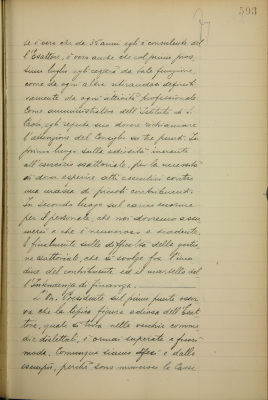 593
se è vero che da 35 anni egli è consulente del
l'Esattore, è vero anche che col primo pros,
simo luglio egli cesserà da tale funzione,
come da ogni altra ritirandosi definiti,
vamente da ogni attività professionale
Come amministratore dell'Istituto di S.
Paolo, egli reputa suo dovere richiamare
l'attenzione del Consiglio su tre punti. In
primo luogo sulla odiosità inerente
all'esercizio esattoriale, per la necessità
di dover esperire atti esecutivi contro
una massa di piccoli contribuenti.
In secondo luogo sul carico enorme
per il personale, che noi dovremo assu,
mere e che è numeroso e scadente.
E finalmente sulle difficoltà della gestio,
ne esattoriale, che si svolge fra l'incu,
dine del contribuente ed il martello del
l'Intendenza di finanza.
L'On. Presidente sul primo punto osser,
va che la tipica figura odiosa dell'Esat
tore, quale si trova nelle vecchie comme,
die dialettali, è ormai superata e fuori
moda. Comunque siamo difesi e dallo
esempio, perchè sono numerose le Casse